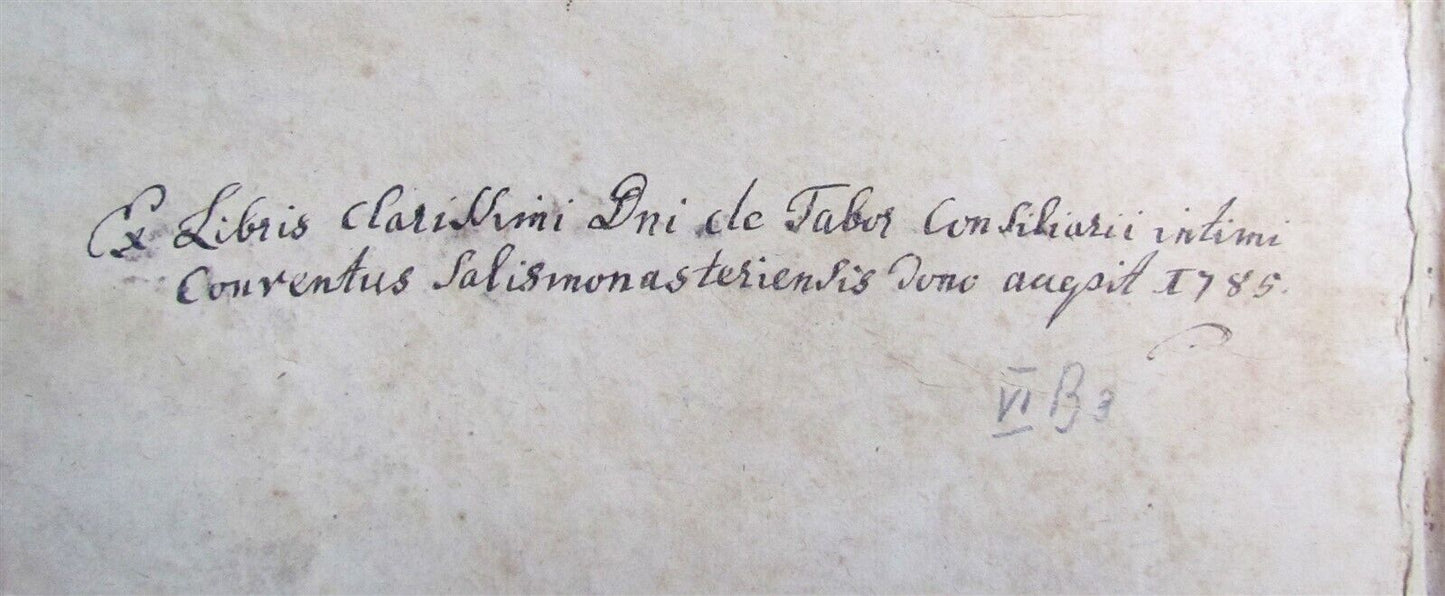 Ex Libris clarissimi Dni de Tabor Consiliarii intimi
Conventus Salismonasteriensis dono 1785.
VI B 3